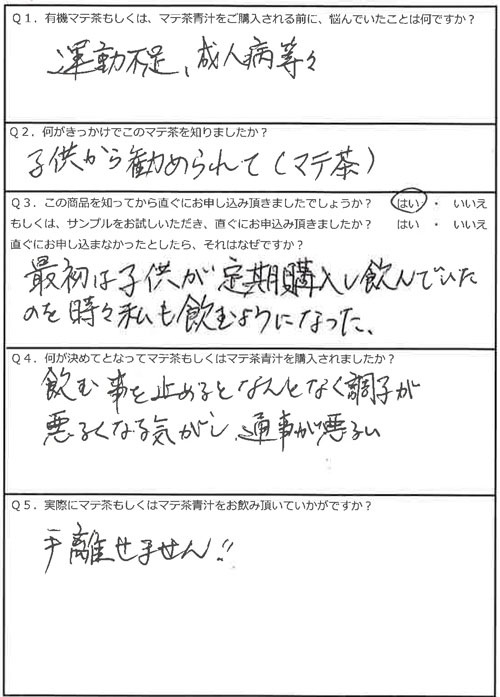 Q1．有機マテ茶もしくは、マテ茶青汁をご購入される前に、悩んでいたことは何ですか？
運動不足、成人病等々
Q2．何がきっかけでこのマテ茶を知りましたか？
子供から勧められて（マテ茶）
Q3．この商品を知ってから直ぐにお申し込み頂きましたでしょうか？　はい　・　いいえ
もしくは、サンプルをお試しいただき、直ぐにお申込み頂きましたか？　はい　・　いいえ
直ぐにお申し込まなかったとしたら、それはなぜですか？
最初は子供が定期購入し飲んでいた
のを時々私も飲むようになった、
Q4．何が決めてとなってマテ茶もしくはマテ茶青汁を購入されましたか？
飲む事を止めるとなんとなく調子が
悪るくなる気がし、通事が悪るい
Q5．実際にマテ茶もしくはマテ茶青汁をお飲み頂いていかがですか？
手離せません!!